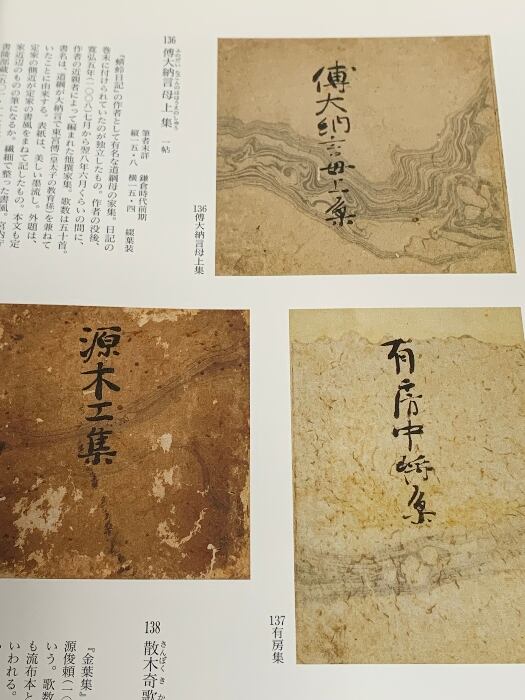 136 傅大納言母上集 一帖
ふのだいなごんのははうえのしゅう
筆者未詳 鎌倉時代前期 綴葉装
縦一五・八 横一五・四
『蜻蛉日記』の作者として有名な道綱母の家集。日記の
巻末に付けられていたのが独立したもの。作者の没後、
寛弘五年(一〇〇八)七月から翌八年六月くらいの間に、
作者の近親者によって編まれた他撰家集。歌数は五十首。
書名は、道綱が大納言で東宮傅(皇太子の教育係)を兼ねて
いたことに由来する。表紙は、美しい墨流し。外題は、
定家の側近が定家の書風をまねて記したもの。本文も定
家近辺のものの筆になるか、繊細で整った書風。宮内庁
書陵部蔵(五〇
136傅大納言母上集
傅大納言母上集
源木工集
有房中将集
137有房集
138 散木奇歌
さんぼくきか
『金葉集』
源俊頼(一〇
いう。歌数
も流布本と
いわれる。